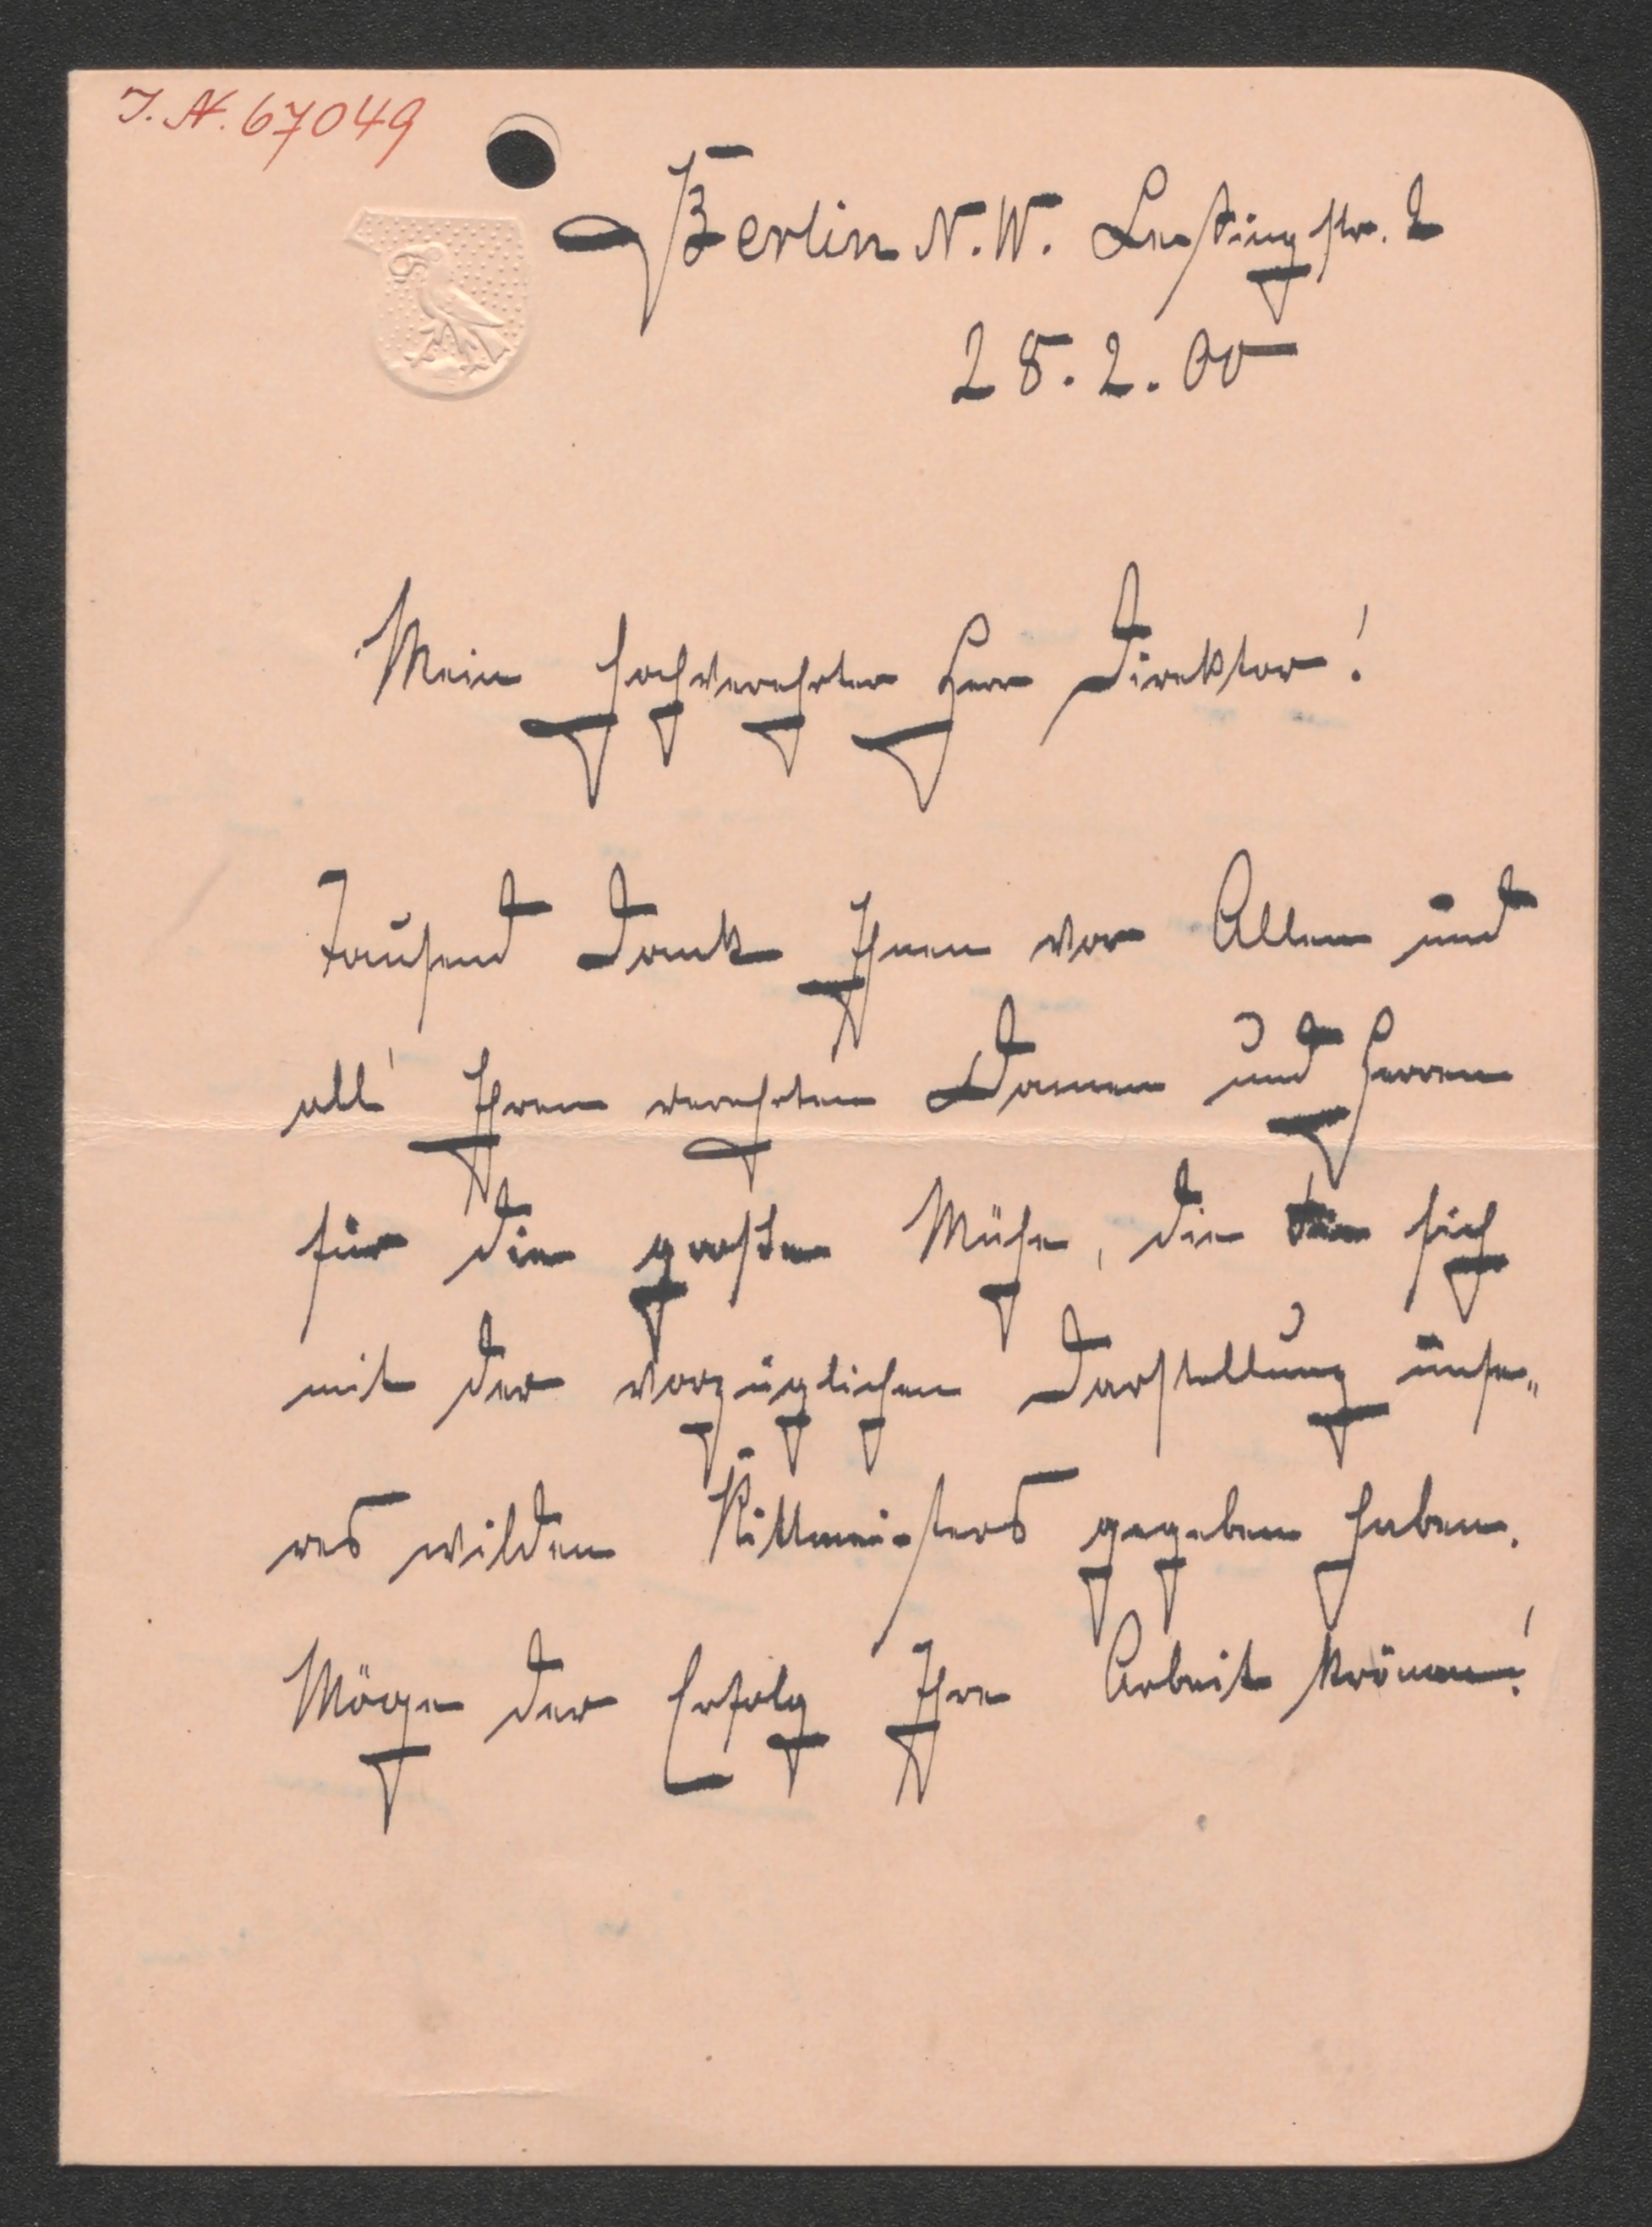 I. N. 67049
Berlin N. W. Lessingstr. 2
28. 2. 00
Mein hochverehrter Herr Direktor!
Tausend Dank Ihnen vor Allem und
all' Ihren verehrten Damen und Herren
für die großen Mühe, die sich
mit der vorzüglichen Darstellung unse„
res wilden Rittmeisters gegeben haben.
Möge der Erfolg Ihre Arbeit krönen!